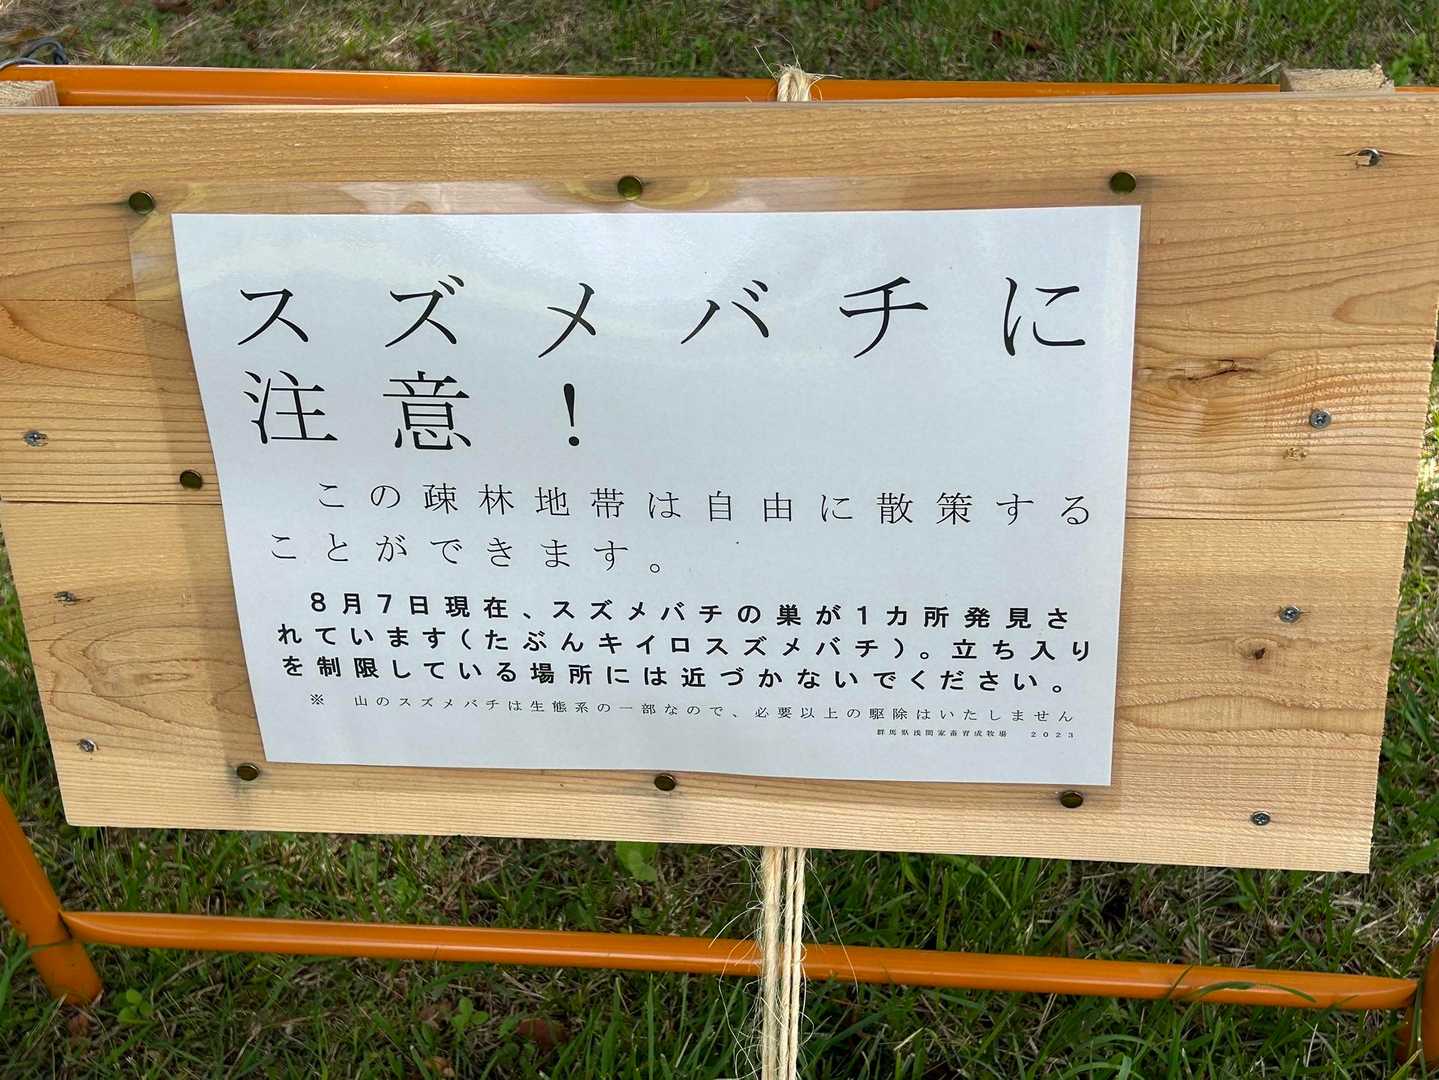 スズメバチに
注意！
この疎林地帯は自由に散策する
ことができます。
８月７日現在、スズメバチの巣が１カ所発見さ
れています（たぶんキイロスズメバチ）。立ち入り
を制限している場所には近づかないでください。
※　山のスズメバチは生態系の一部なので、必要以上の駆除はいたしません
群馬県浅間家畜育成牧場　２０２３